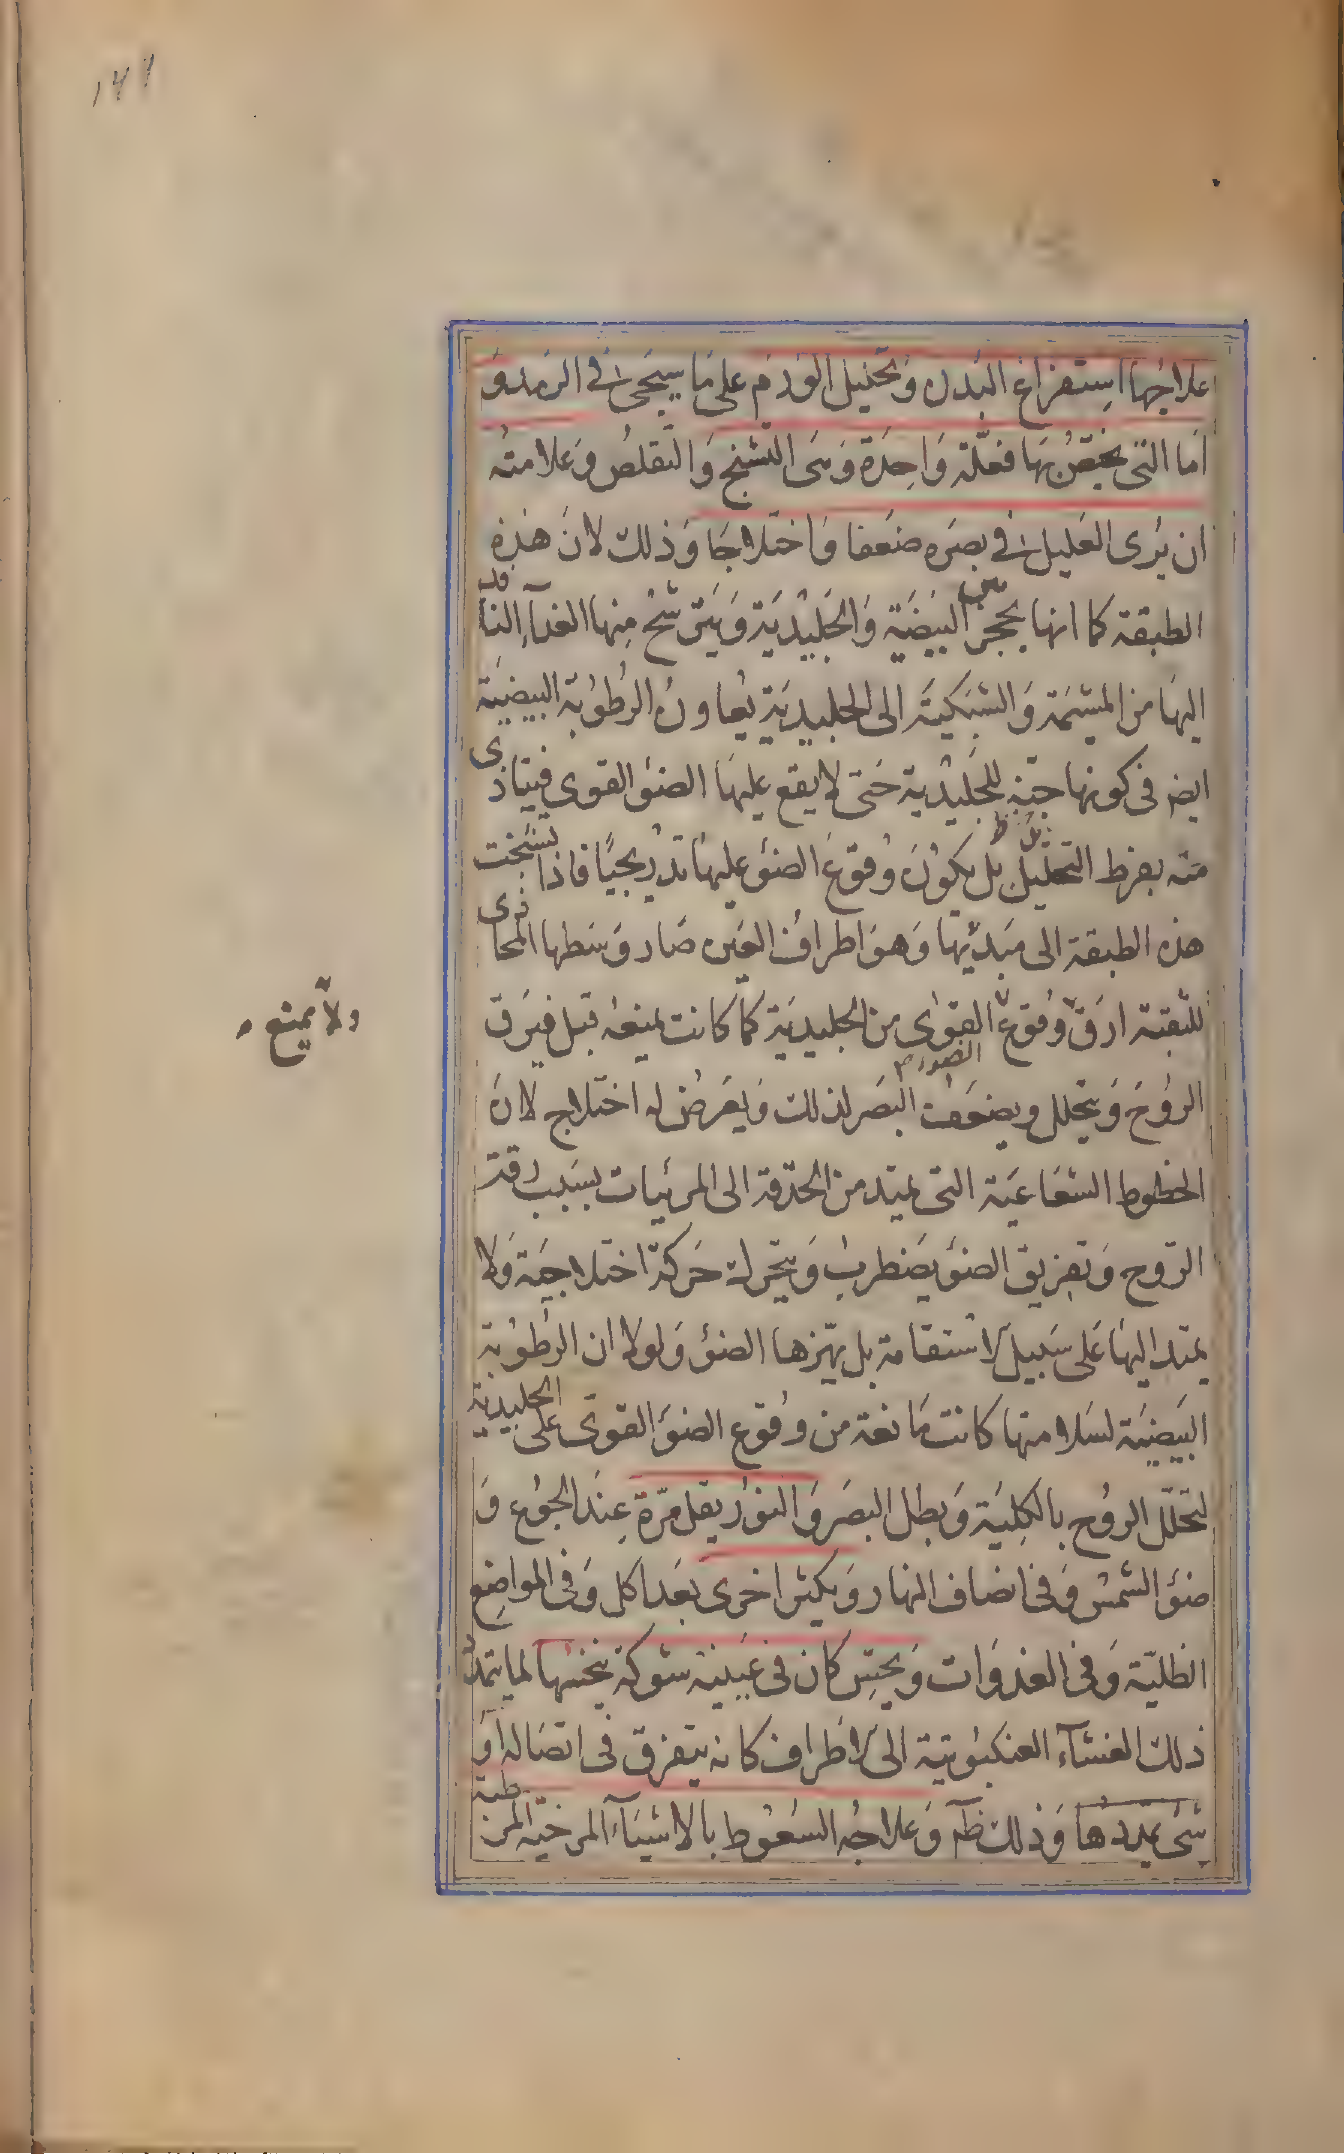 ١٧٦
علاجها استفراغ البدن وتحليل الورم على ما سيجيء في الرمد و
اما التي يختص بها فعلّة واحدة وهي التشنج والتقلص وعلامته
ان يرى العليل في بصره ضعفا واختلاجا وذلك لان هذه
الطبقة كما انها يحجز بين البيضية والجليدية ويترشح منها الغذآء النافذ
اليها من المشيمة والشبكية الى الجليدية يعاون الرطوبة البيضية
ايضا في كونها جنّة للجليدية حتى لا يقع عليها الضوء القوى فيتاذى
منه بفرط التحليل بل يكون وقوع الضوء عليها تدريجيا فاذا تشنجت
هذه الطبقة الى مبديها وهو اطراف العين صار وسطها المحاذى
للثقبة ارق وقوع القوى من الجليدية كما كانت يمنعه قبل فيرق
ولا يمنع
الضوء
الروح ويتحلل ويضعف البصر لذلك ويعرض له اختلاج لان
الخطوط الشعاعية التي يمتد من الحدقة الى المرئيات بسبب رقة
الروح وتفريق الضوء يضطرب ويتحرك حركة اختلاجية ولا
يمتد اليها على سبيل الاستقامة بل يهزها الضوء ولولا ان الرطوبة
البيضية لسلامتها كانت مانعة من وقوع الضوء القوى على الجليدية
لتحلل الروح بالكلية وبطل البصر والنور يقل مرة عند الجوع و
ضوء الشمس وفي انصاف النهار ويكثر اخرى بعد اكل وفي المواضع
الظليّة وفي الغدوات ويحس كان في عينيه شوكة ينخسها لما يتمدد
ذلك الغشآء العنكبوتية الى الاطراف كانه يتفرق في اتصاله او
شئ يمددها وذلك ظ وعلاجه السعوط بالاشيآء المرخية المرطبة